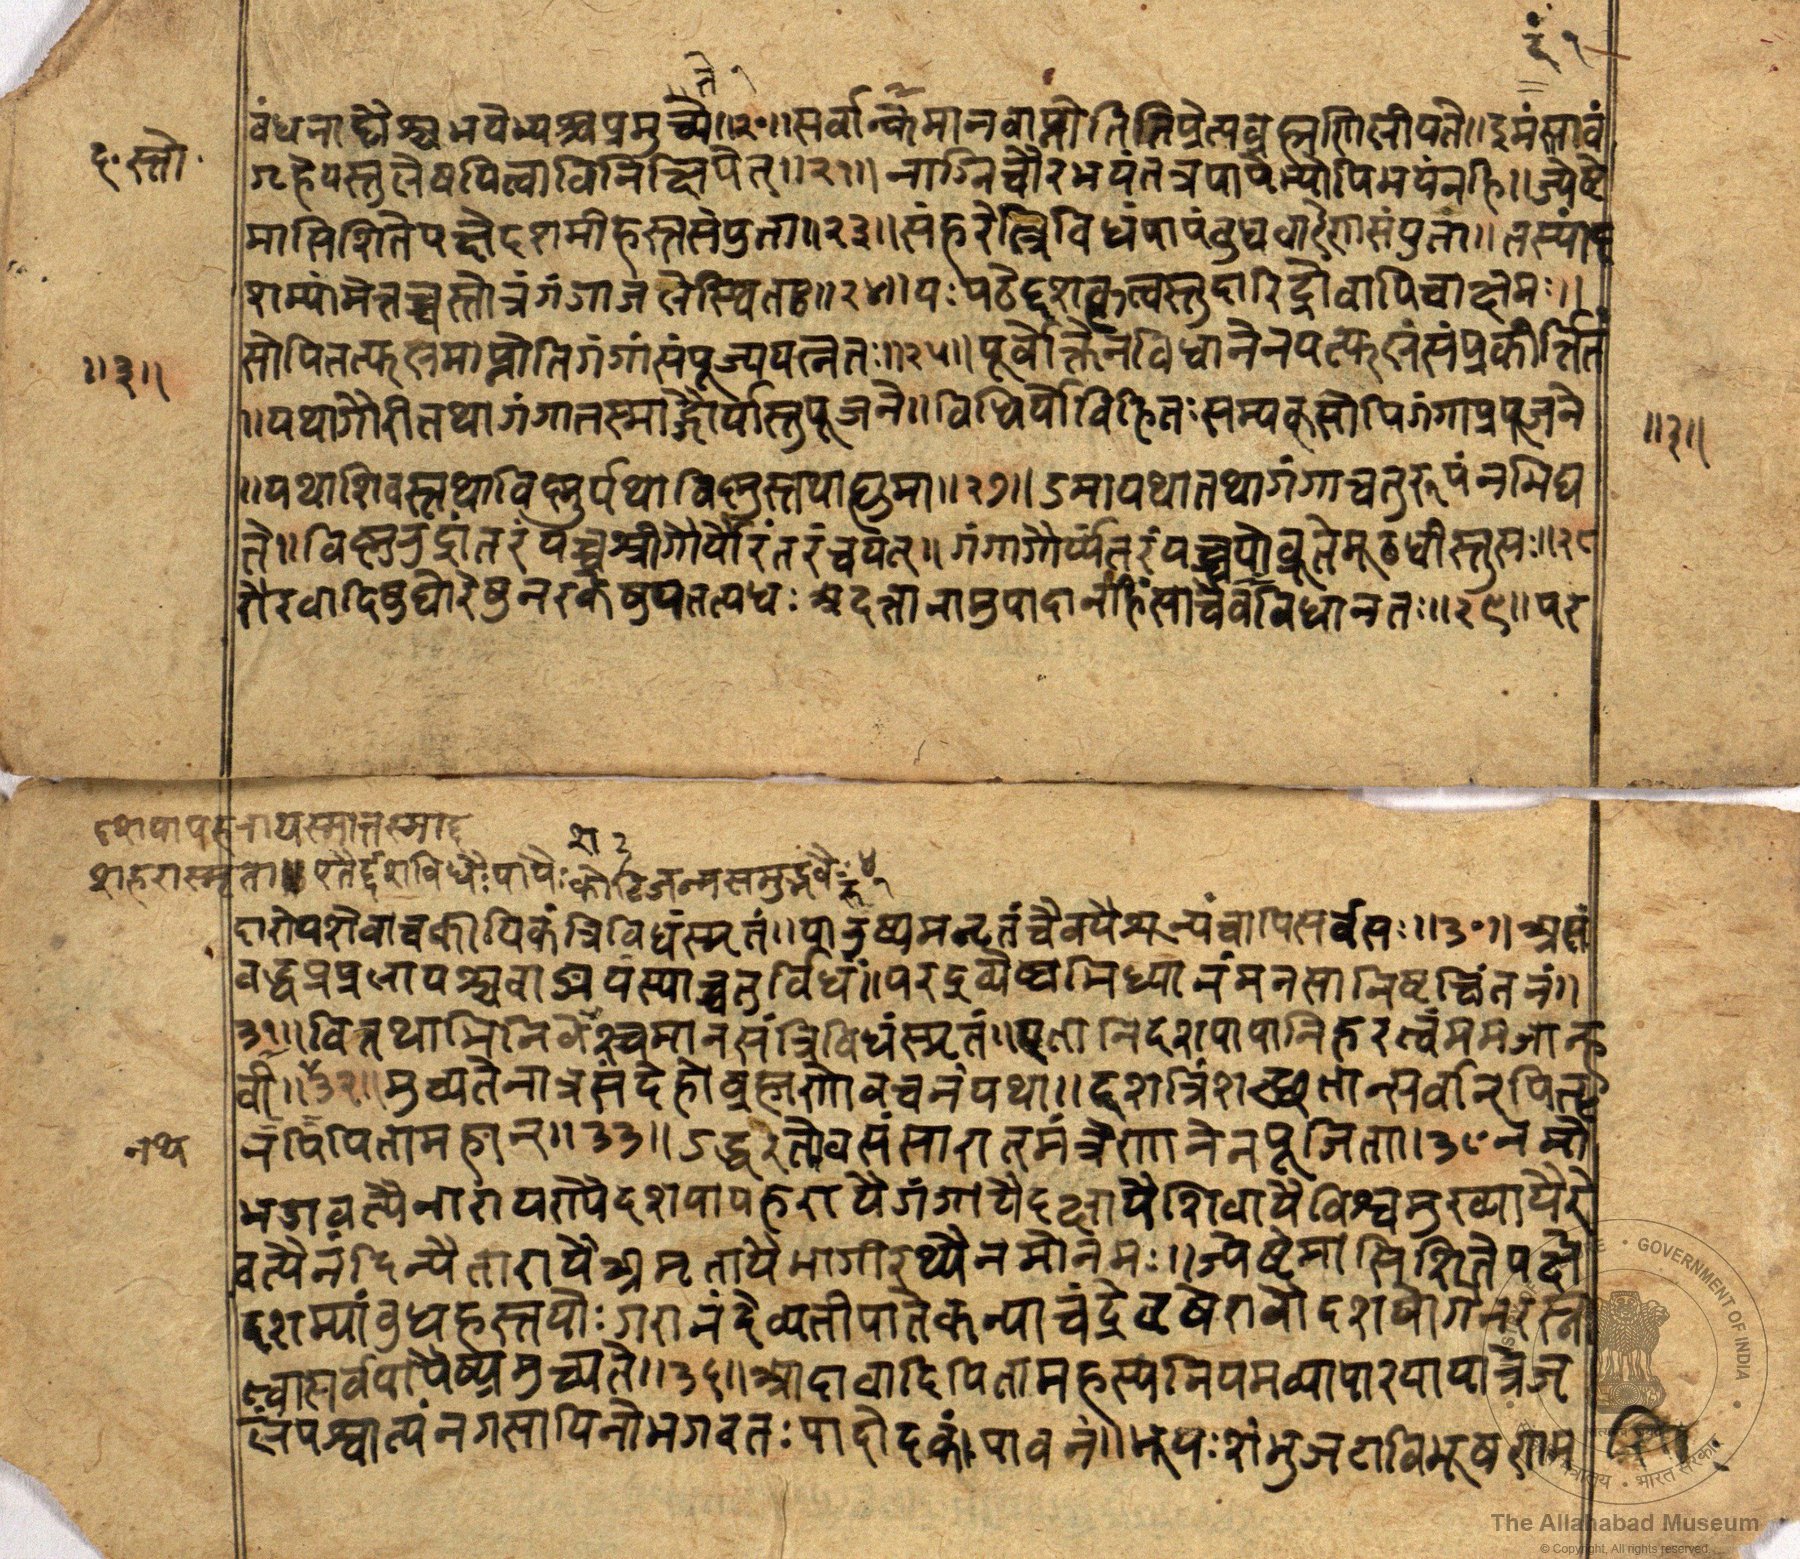 ते १
द॰ स्तो॰
बंधनाद्घोरश्च भयेभ्यश्च प्रमुच्यते ॥२०॥ सर्वान्कामानवाप्नोति प्रेत्य ब्रह्मणि लीयते ॥ इमं स्तवं
गृहे यस्तु लेषयित्वा विनिक्षिपेत् ॥२१॥ नाग्निचौरभयं तत्र पापेभ्योपि भयं नहि ॥ ज्येष्टे
मासि शिते पक्षे दशमी हस्तसंयुता ॥२३॥ संहरेत्त्रिविधं पापं बुधवारेण संयुता ॥ तस्यां द
शम्यामेतच्च स्तोत्रं गंगाजले स्थितः ॥२४॥ यः पठेद्दशकृत्वस्तु दारिद्रो वापि चाक्षमः ॥
॥३॥
सोपि तत्फलमाप्नोति गंगां संपूज्य यत्नतः ॥२५॥ पूर्वोक्तेन विधानेन यत्फलं संप्रकीर्त्तितं
॥ यथा गौरी तथा गंगा तस्माद्गौर्यास्तु पूजने ॥ विधिर्यो विहितः सम्यक् सोपि गंगाप्रपूजने
॥३॥
॥ यथा शिवस्तथा विष्णुर्यथा विष्णुस्तथा ह्युमा ॥२७॥ उमा यथा तथा गंगा चतुरूपं न भिद्य
ते ॥ विष्णुरुद्रांतरं यच्च श्रीगौर्योरंतरं च यत् ॥ गंगागौर्य्यंतरं यच्च यो ब्रूते मूढधीस्तु सः ॥२८
रौरवादिषु घोरेषु नरकेषु पतत्यधः अदत्तानामुपादानं हिंसा चैवविधानतः ॥२९॥ पर
दशपापहरा यस्मात्तस्माद्द
शहरा स्मृता ॥ एतैर्द्दशविधैः पापैः कोटिजन्मसमुद्भवैः
दारोपसेवा च कायिकं त्रिविधं स्मृतं ॥ पारुष्यमनृतं चैव पैशून्यं चापि सर्वसः ॥३०॥ असं
बद्धप्रलापश्च वाङ्मयं स्याच्चतुर्विधं ॥ परद्रव्येष्वभिध्यानं मनसानिष्टचिंतनं ॥
३१॥ वितथाभिनिवेशश्च मानसं त्रिविधं स्मृतं ॥ एतानि दश पापानि हर त्वं मम जान्ह
वी ॥३२॥ मुच्यते नात्र संदेहो ब्रह्मणो वचनं यथा ॥ दश त्रिंशच्छतान्सर्वान् पितॄ
नथ
पितामहान् ॥३३॥ उद्धरत्येव संसारात् मंत्रेणानेन पूजिता ॥ नमो
भगवत्यै नारायण्यै दशपापहरायै गंगायै दक्षायै शिवायै विश्वमुख्यायै रे
वत्यै नंदिन्यै तारायै अमृतायै भागीरथ्यै नमो नमः ॥ ज्येष्टे मासि शिते पक्षे
दशम्यां बुधहस्तयोः गरानंदे व्यतीपाते कन्याचंद्रे वृषे रवौ दशयोगे नरः स्ना
त्वा सर्वपापैः प्रमुच्यते ॥३६॥ आदावादिपितामहस्य नियमव्यापारपात्रे ज
लं पश्चात्पंनगसायिनो भगवतः पादोदकं पावनं ॥ भूयः शंभुजटाविभूषणम
GOVERNMENT OF INDIA
भारत सरकार
The Allahabad Museum
© Copyright, All rights reserved.